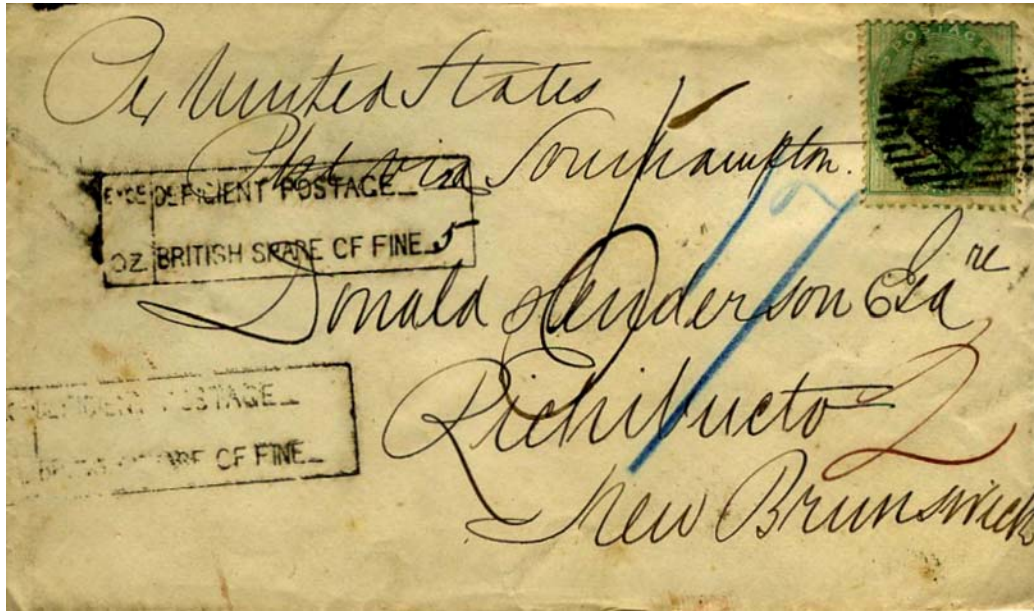 POSTAGE
Per United States
Pkt via Southampton.
DEFICIENT POSTAGE
OZ BRITISH SHARE OF FINE 5
Donald Henderson Esqre
Richibucto 2
New Brunswick
DEFICIENT POSTAGE
SHARE OF FINE